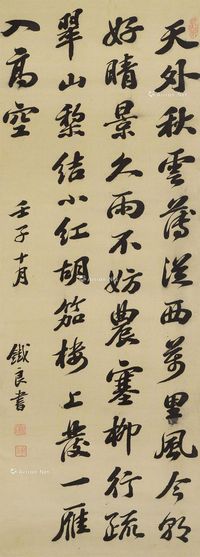 天外秋雲薄從西萬里風今朝
好晴景久雨不妨農塞柳行疏
翠山棃結小紅胡笳樓上發一雁
入高空
壬子十月
鐵良書